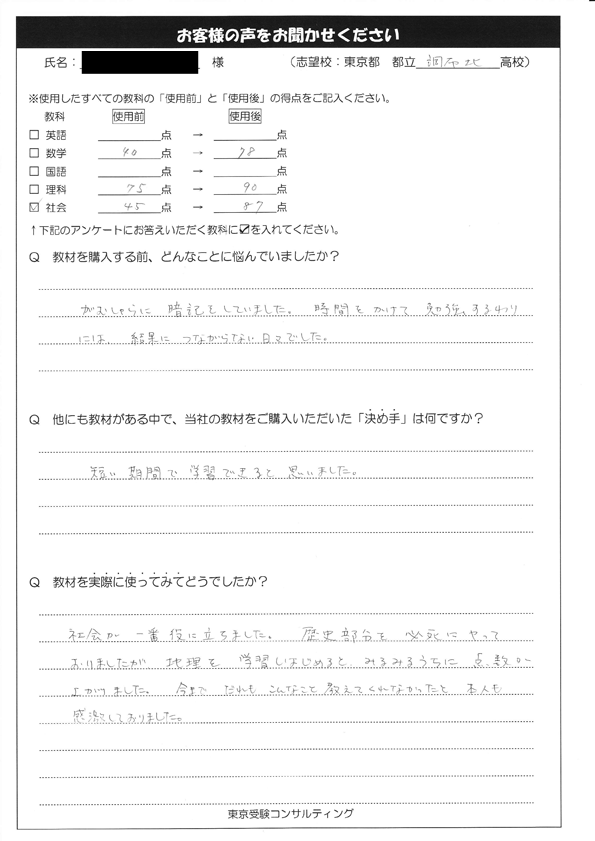 お客様の声をお聞かせください
氏名： 様 （志望校：東京都 都立 調布北 高校）
※使用したすべての教科の「使用前」と「使用後」の得点をご記入ください。
教科 使用前 使用後
□ 英語 点 → 点
□ 数学 40 点 → 78 点
□ 国語 点 → 点
□ 理科 75 点 → 90 点
☑ 社会 45 点 → 87 点
↑下記のアンケートにお答えいただく教科に☑を入れてください。
Q 教材を購入する前、どんなことに悩んでいましたか？
がむしゃらに 暗記をしていました。 時間をかけて 勉強するわり
には、結果に つながらない日々でした。
Q 他にも教材がある中で、当社の教材をご購入いただいた「決め手」は何ですか？
短い期間で学習できると思いました。
Q 教材を実際に使ってみてどうでしたか？
社会が 一番役に立ちました。 歴史部分を 必死にやって
おりましたが 地理を 学習しはじめると みるみるうちに 点数が
上がりました。 今まで だれも こんなこと教えてくれなかったと 本人も
感激しておりました。
東京受験コンサルティング